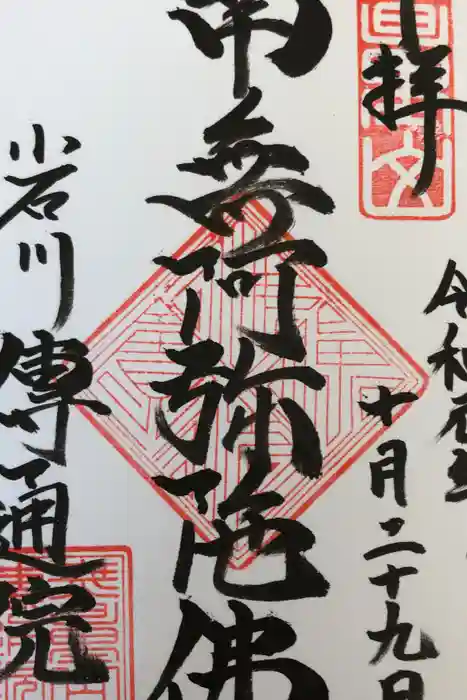 拝
令和元年
十月二十九日
南無阿弥陀佛
小石川
傳通院